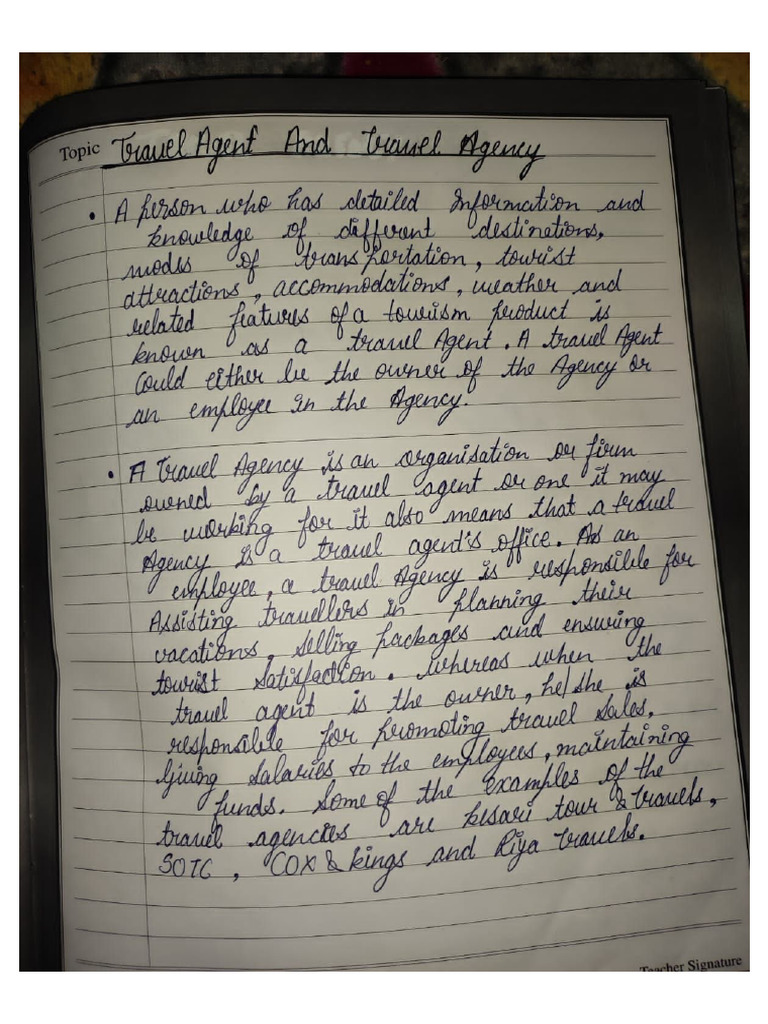 Topic Travel Agent And Travel Agency
• A person who has detailed Information and
knowledge of different destinations,
modes of transportation, tourist
attractions, accommodations, weather and
related features of a tourism product is
known as a travel Agent. A travel Agent
Could either be the owner of the Agency or
an employee in the Agency.
• A Travel Agency is an organisation or firm
owned by a travel agent or one it may
be working for it also means that a travel
Agency is a travel agent's office. As an
employee, a travel Agency is responsible for
Assisting travellers in planning their
vacations, selling packages and ensuring
tourist satisfaction. whereas when the
travel agent is the owner, he/she is
responsible for promoting travel sales,
Giving salaries to the employees, maintaining
funds. Some of the examples of the
travel agencies are kesari tour & travels,
SOTC, COX & kings and Riya travels.
Teacher Signature